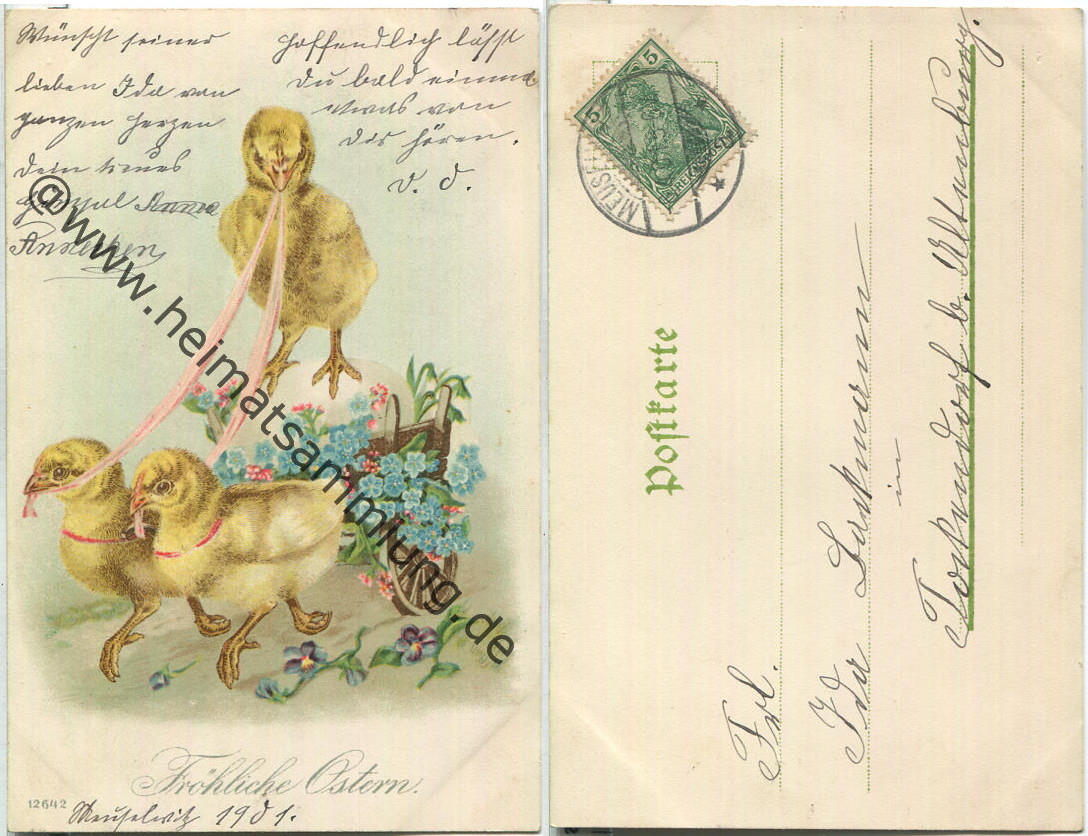 Wünscht seiner
lieben Ida von
ganzen Herzen
Dein treues
Annchen
Hoffendlich läßt
Du bald einmal
etwas von
Dir hören.
D. O.
©www.heimatsammlung.de
Fröhliche Ostern.
12642
Meuselwitz 1901.
5
5
REICHSPOST
MEUS
Postkarte
Frl.
Ida
in
b. Altenburg.